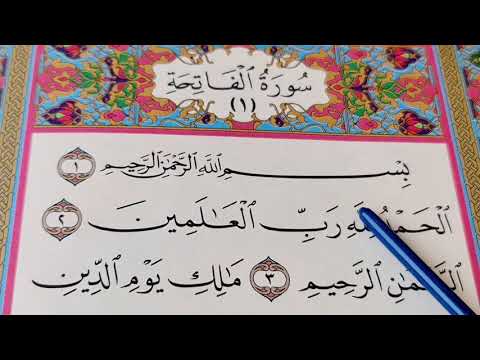 سُورَةُ ٱلْفَاتِحَةِ
(١)
بِسْمِ ٱللَّهِ ٱلرَّحْمَٰنِ ٱلرَّحِيمِ ١
ٱلْحَمْدُ لِلَّهِ رَبِّ ٱلْعَٰلَمِينَ ٢
ٱلرَّحْمَٰنِ ٱلرَّحِيمِ ٣ مَٰلِكِ يَوْمِ ٱلدِّينِ